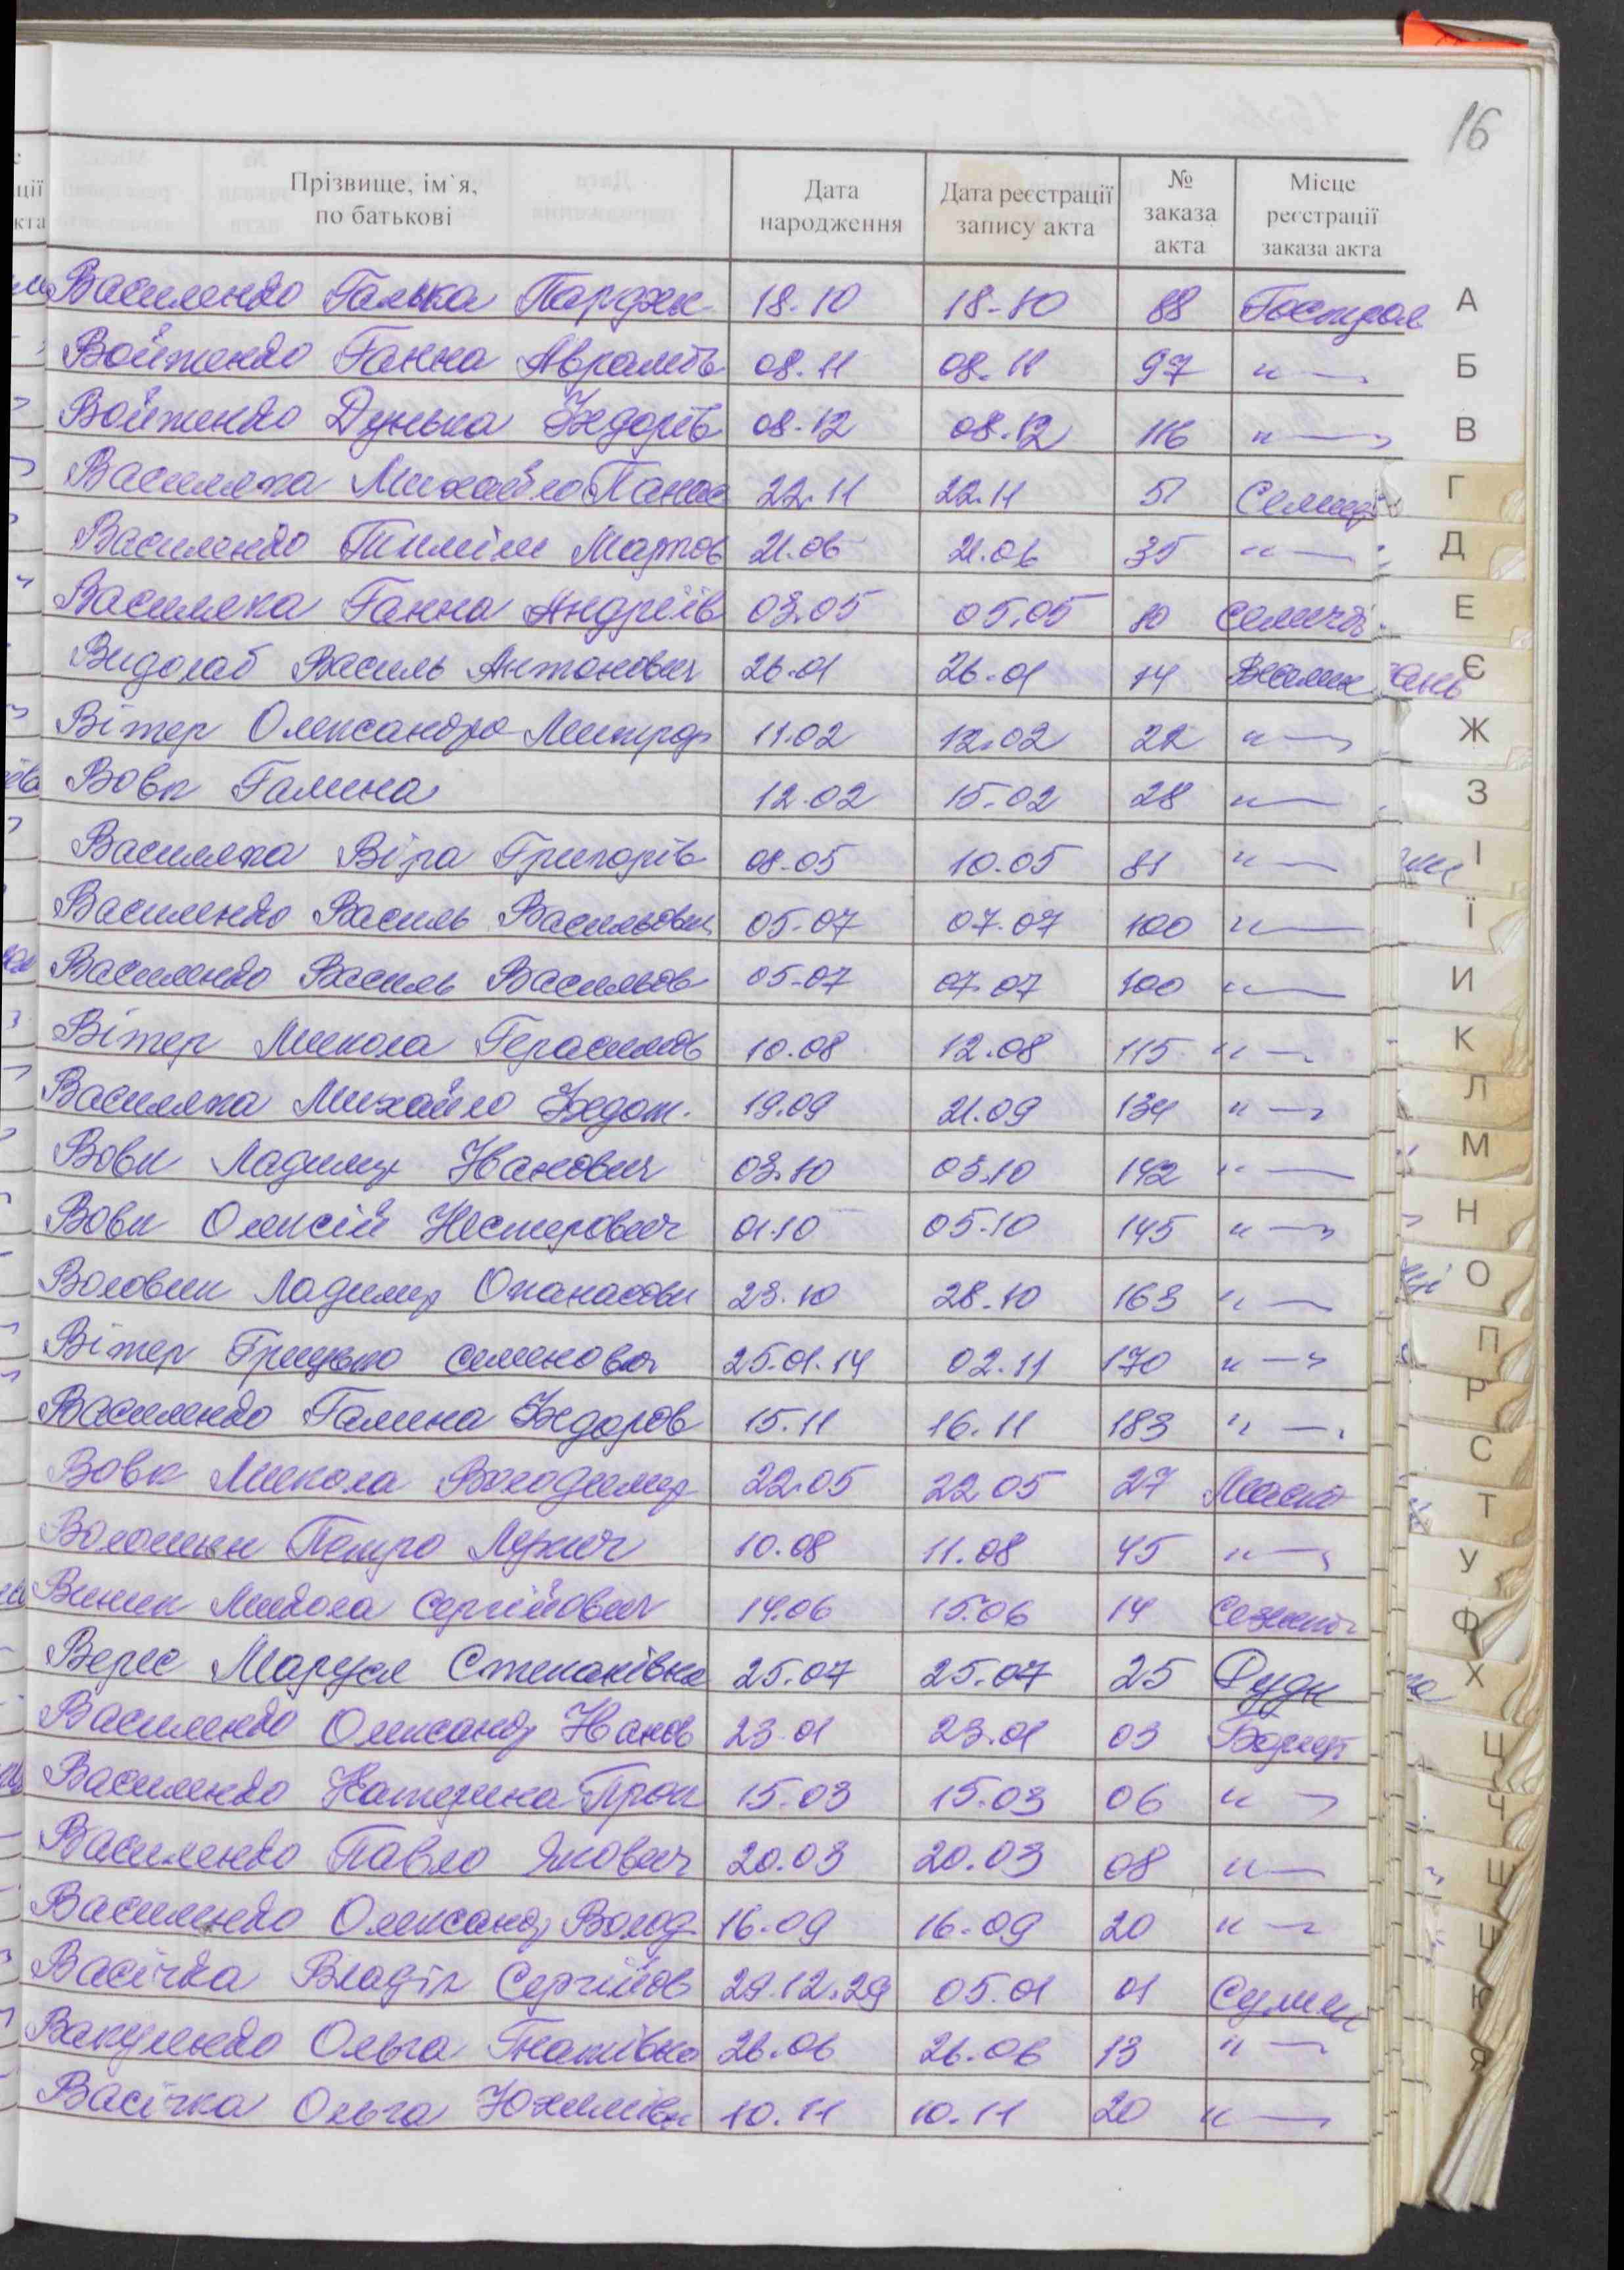 16
Прізвище, ім`я, по батькові
Дата народження
Дата реєстрації запису акта
№ заказа акта
Місце реєстрації заказа акта
Василенко Галька 18.10 18-10 88 Гострол
Войтенко Ганна Аврамів 08.11 08.11 97 " —
Войтенко Дунька Федорів 08.12 08.12 116 " —
Василяка Михайло Панас 22.11 22.11 51
Василенко Тиміш Марков 21.06 21.06 35 " —
Василяка Ганна Андріїв 03.05 05.05 80
Видолоб Василь Антонович 26.01 26.01 14
Вітер Олександра Митроф 11.02 12.02 22 " —
Вовк Галина 12.02 15.02 28 " —
Василяка Віра Григорів 08.05 10.05 81 " —
Василенко Василь Васильович 05.07 07.07 100 " —
Василенко Василь Васильов 05.07 07.07 100 " —
Вітер Микола Герасимов 10.08 12.08 115 " —
Василяка Михайло Федот. 19.09 21.09 134 " —
Вовк Ладимир Іванович 03.10 05.10 142 " —
Вовк Олексій Нестерович 01.10 05.10 145 " —
Воловик Ладимир Опанасови 23.10 28.10 163 " —
Вітер Грицько Семенович 25.01.14 02.11 170 " —
Василенко Галина Федоров 15.11 16.11 183 " —
Вовк Микола Володимир 22.05 22.05 27
Волошин Петро 10.08 11.08 45 " —
Виник Микола Сергійович 14.06 15.06 14
Верес Маруся Степанівна 25.07 25.07 25 Рудк
Василенко Олександ Іванов 23.01 23.01 03
Василенко Катерина Прок 15.03 15.03 06 " —
Василенко Павло Якович 20.03 20.03 08 " —
Василенко Олександ Волод 16.09 16.09 20 " —
Васічка Владіл Сергійов 29.12.29 05.01 01
Вакуленко Ольга Гнатівна 26.06 26.06 13 " —
Васічка Ольга Юхимівн 10.11 10.11 20 " —
А
Б
В
Г
Д
Е
Є
Ж
З
І
Ї
И
К
Л
М
Н
О
П
Р
С
Т
У
Ф
Х
Ц
Ч
Ш
Щ
Ю
Я